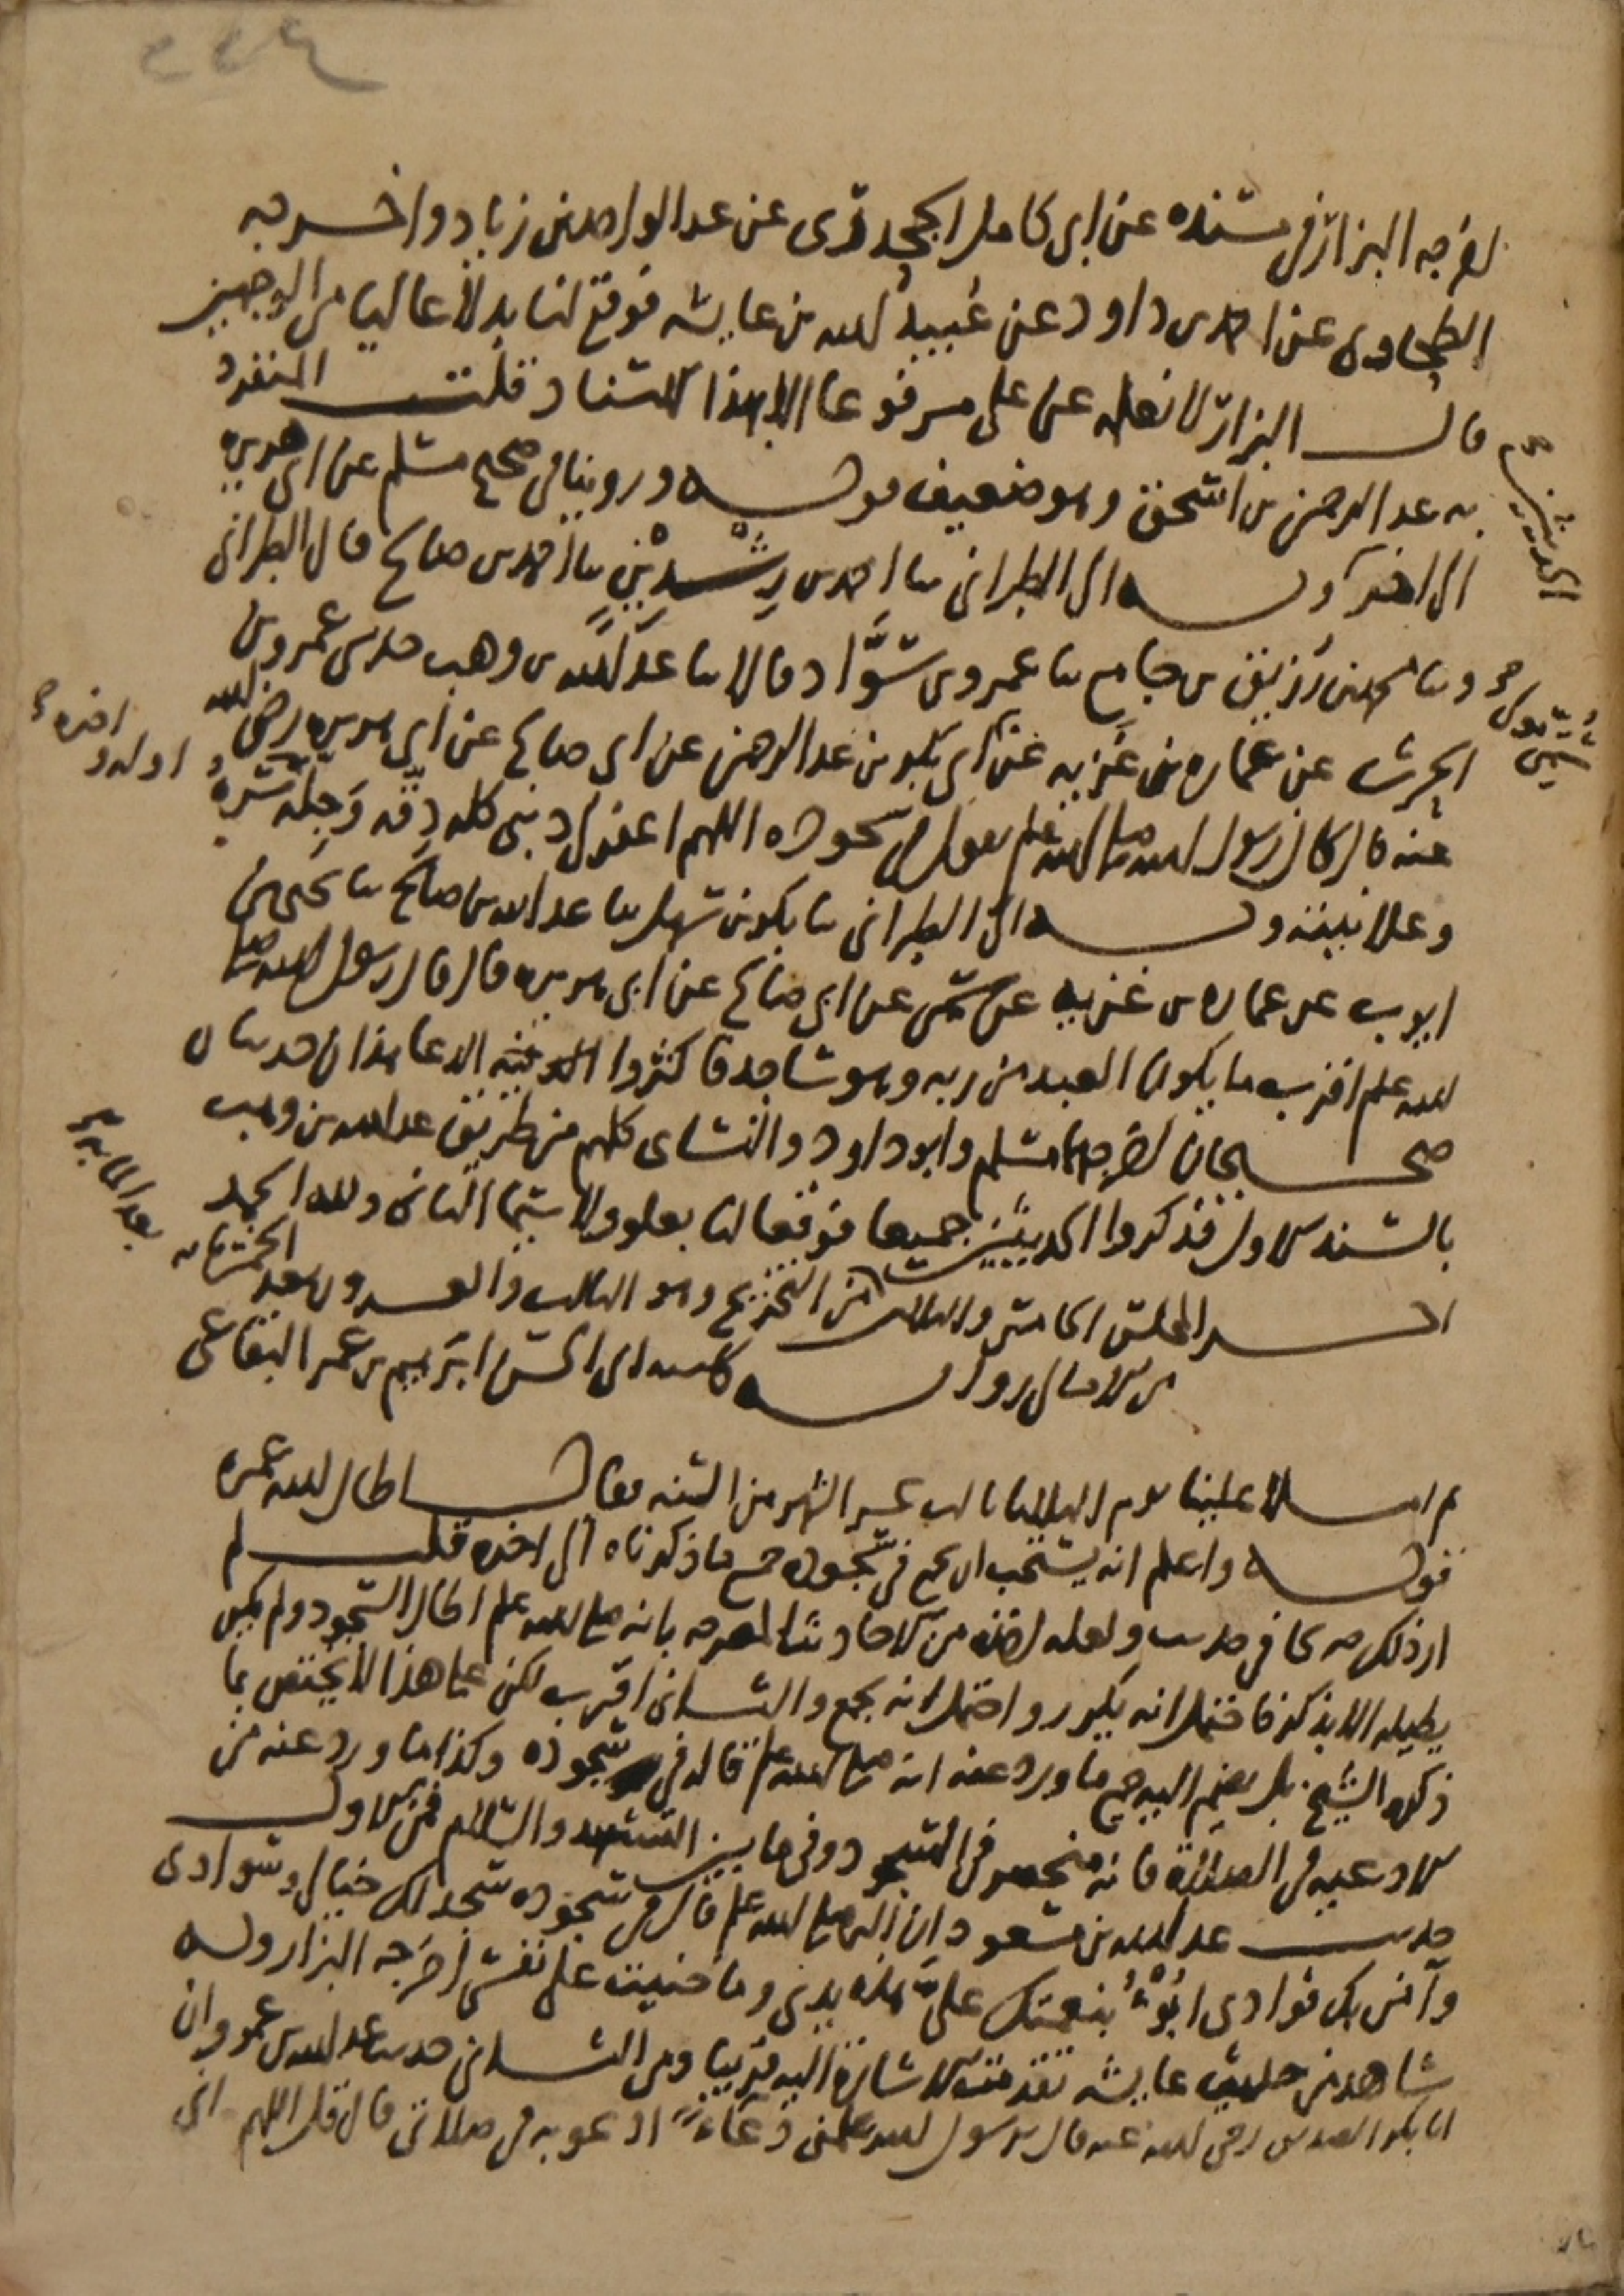 ٢٢٤
اخرجه البزار في مسنده عن ابي كامل الجحدري عن عبد الواحد بن زياد واخرجه
الطحاوي عن احمد بن داود عن عبيد الله بن عايشه فوقع لنا بدلا عاليا من الوجهين
قال البزار لا نعلمه عن علي مرفوعا الا بهذا الاسناد قلت انفرد
به عبد الرحمن بن اسحق وهو ضعيف قوله وروينا في صحيح مسلم عن ابي هريرة
الى اخره وبه الى الطبراني ثنا احمد بن رشدين ثنا احمد بن صالح قال الطبراني
وثنا محمد بن رزيق بن جامع ثنا عمرو بن سواد قالا ثنا عبد الله بن وهب حدثني عمرو بن
الحرث عن عماره بن غزيه عن سمي مولى ابي بكر بن عبد الرحمن عن ابي صالح عن ابي هريره رضي الله
عنه قال كان رسول الله صلى الله عليه وسلم يقول في سجوده اللهم اغفر لي ذنبي كله دقه وجله سره
اوله واخره صح
وعلانيته وبه الى الطبراني ثنا بكر بن سهل ثنا عبد الله بن صالح ثنا يحيى بن
ايوب عن عماره بن غزيه عن سمي عن ابي صالح عن ابي هريره قال قال رسول الله صلى
الله عليه وسلم اقرب ما يكون العبد من ربه وهو ساجد فاكثروا فيه الدعا هذان حديثان
صحيحان اخرجهما مسلم وابو داود والنسائي كلهم من طريق عبد الله بن وهب
بالسند الاول فذكروا الحديثين جميعا فوقعا لنا بعلو ولا سيما الثاني ولله الحمد
اخر المجلس الخامس والثلاثين من التخريج وهو الثالث والعشرون بعد الخمسمايه
بعد المايه صح
من الامالي روايه كاتبه ابي الحسن ابراهيم بن عمر البقاعي
ثم املا علينا يوم الثلاثا ثالث عشر الشهر من السنه فقال اطال الله عمره
قوله واعلم انه يستحب ان يجمع في سجوده جميع ما ذكرناه الى اخره قلت لم
ار ذلك صريحا في حديث ولعله اخذه من الاحاديث المصرحه بانه صلى الله عليه وسلم اطال السجود ولم يكن
يطيله الا بذكر فاحتمل انه يكرر واحتمل انه يجمع والثاني اقرب لكن على هذا لا يختص بما
ذكره الشيخ بل يضم اليه جميع ما ورد عنه انه صلى الله عليه وسلم قاله في سجوده وكذا ما ورد عنه من
الادعيه في الصلاة فانه منحصر في السجود وفي ما بين التشهد والسلام فمن الاول
حديث عبد الله بن مسعود ان النبي صلى الله عليه وسلم قال في سجوده سجد لك خيالي وسوادي
وآمن بك فوادي ابوء بنعمتك علي هذه يدي وما جنيت على نفسي اخرجه البزار وله
شاهد من حديث عايشه تقدمت الاشارة اليه قريبا ومن الثاني حديث عبد الله بن عمرو ان
ابا بكر الصديق رضي الله عنه قال يرسول الله علمني دعاء ادعو به في صلاتي قال قل اللهم اني